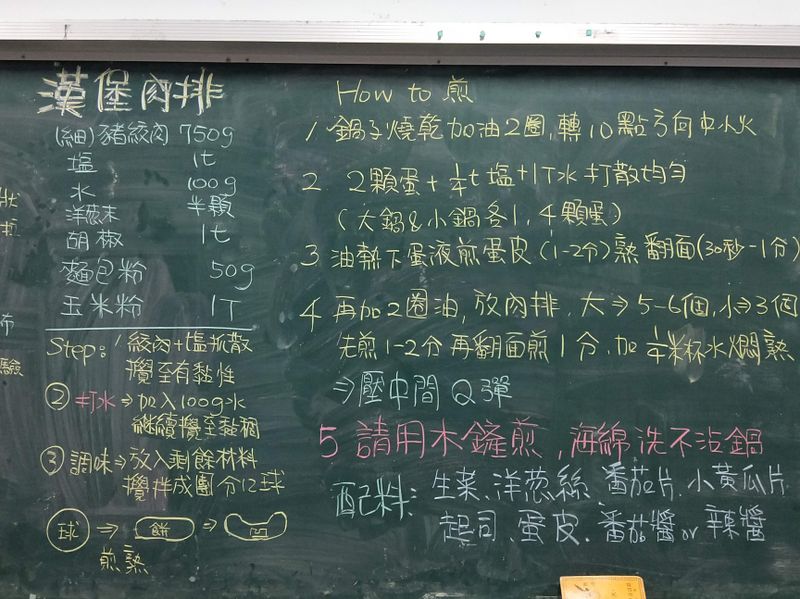 漢堡肉排
(細)豬絞肉 750g
塩 1t
水 100g
洋葱末 半顆
胡椒 1t
麵包粉 50g
玉米粉 1T
Step: 1 絞肉+塩抓散
攪至有黏性
② 打水⇒加入100g水
繼續攪至黏稠
③ 調味⇒放入剩餘材料
攪拌成團分12球
球 ⇒ 餅 ⇒ 凹
煎熟
How to 煎
1 鍋子燒乾加油2圈,轉10點方向中小火
2 2顆蛋+¼t塩+1T水 打散均勻
(大鍋&小鍋各1,4顆蛋)
3 油熱下蛋液煎蛋皮(1-2分)熟翻面(30秒-1分)
4 再加2圈油,放肉排,大⇒5-6個,小⇒3個
先煎1-2分再翻面煎1分,加¼米杯水燜熟
⇒壓中間Q彈
5 請用木鏟煎,海綿洗不沾鍋
配料: 生菜、洋葱絲、番茄片、小黃瓜片
起司、蛋皮、番茄醬or辣醬
驗